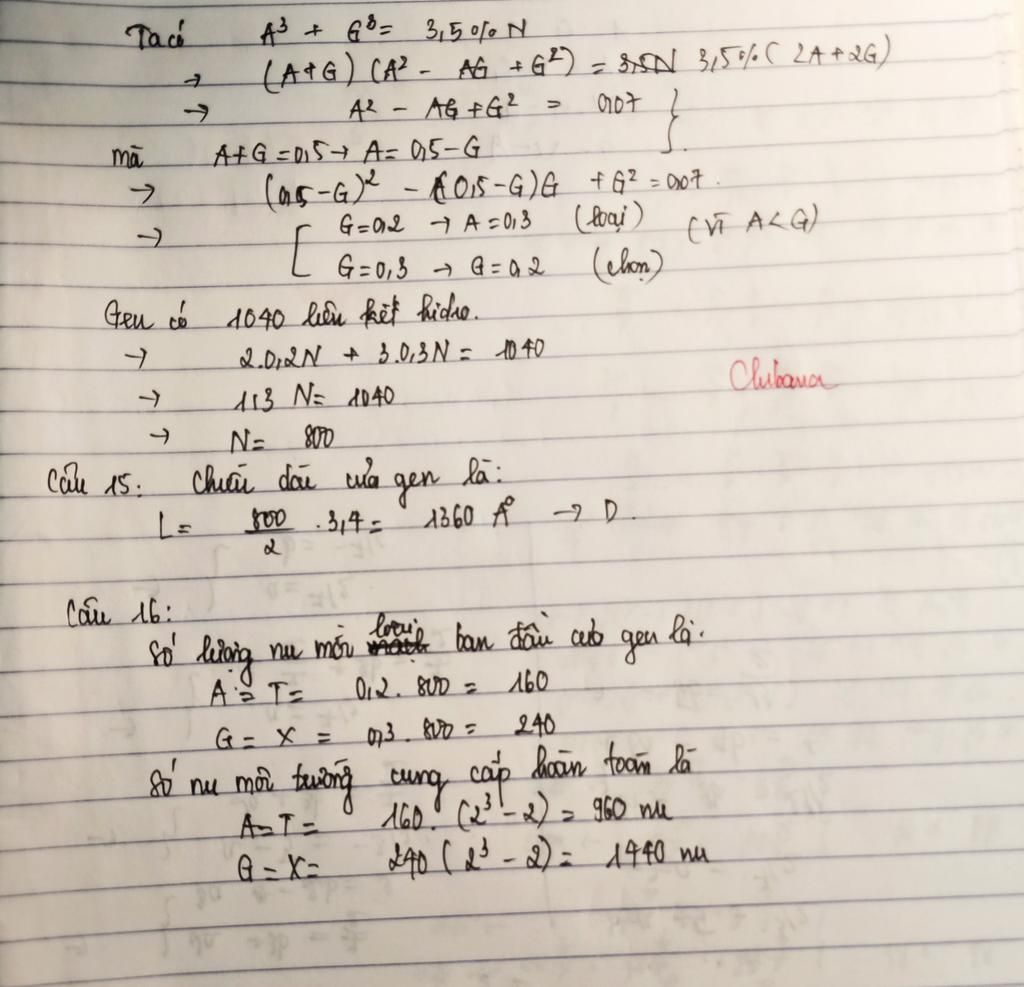 Ta có A³ + G³ = 3,5% N
→ (A+G) (A² - AG + G²) = 3,5N 3,5% ( 2A + 2G)
→ A² - AG + G² = 0,07 }
mà A+G = 0,5 → A = 0,5 - G
→ (0,5 - G)² - (0,5 - G)G + G² = 0,07.
→ [ G = 0,2 → A = 0,3 (loại) (vì A < G)
G = 0,3 → G = 0,2 (chọn)
Gen có 1040 liên kết hidro.
→ 2.0,2N + 3.0,3N = 1040
→ 1,3 N = 1040
→ N = 800
Chibana
Câu 15: Chiều dài của gen là:
L = 800/2 . 3,4 = 1360 Å → D.
Câu 16:
Số lượng nu mỗi loại ban đầu của gen là:
A = T = 0,2 . 800 = 160
G = X = 0,3 . 800 = 240
Số nu môi trường cung cấp hoàn toàn là
A = T = 160. (2³ - 2) = 960 nu
G = X = 240 ( 2³ - 2) = 1440 nu